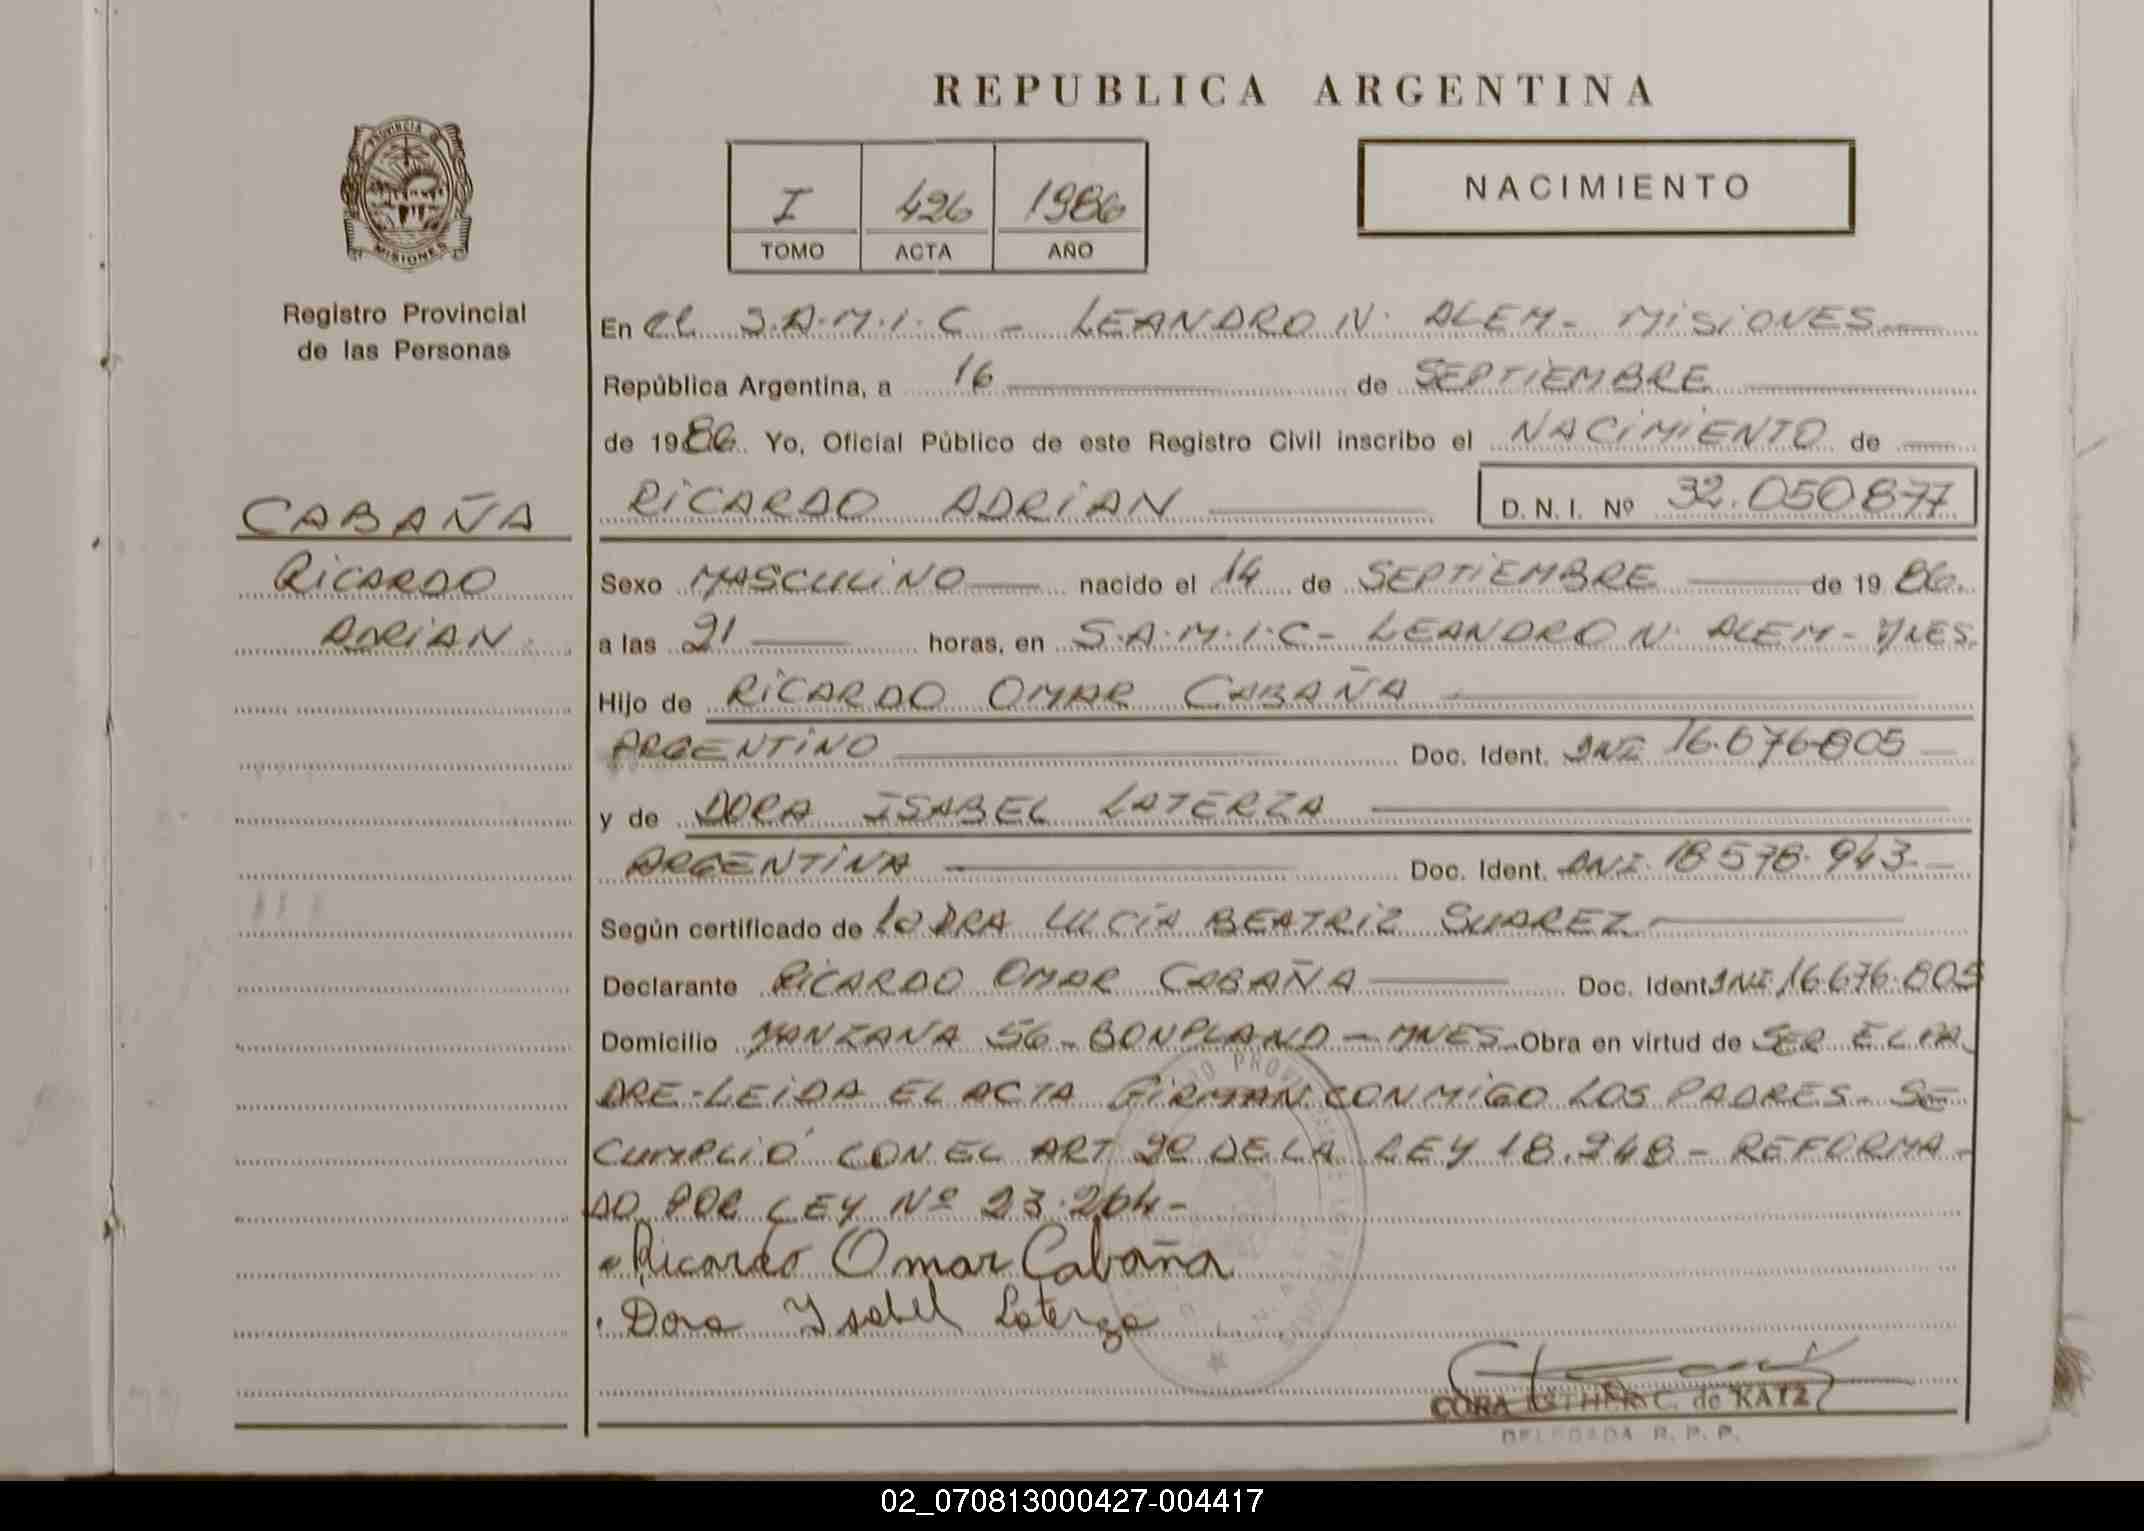 REPUBLICA ARGENTINA
PROVINCIA D
MISIONES
Registro Provincial
de las Personas
I 426 1986
TOMO ACTA AÑO
NACIMIENTO
CABAÑA
RICARDO
ADRIAN
En el S.A.M.I.C - LEANDRO N. ALEM - MISIONES
República Argentina, a 16 de SEPTIEMBRE
de 1986 Yo, Oficial Público de este Registro Civil inscribo el NACIMIENTO de
RICARDO ADRIAN D. N. I. Nº 32.050.877
Sexo MASCULINO nacido el 14 de SEPTIEMBRE de 19 86
a las 21 horas, en S.A.M.I.C - LEANDRO N. ALEM - MNES.
Hijo de RICARDO OMAR CABAÑA
ARGENTINO Doc. Ident. DNI 16.676.805
y de DORA ISABEL LATERZA
ARGENTINA Doc. Ident. DNI 18.578.943
Según certificado de DRA LUCIA BEATRIZ SUAREZ
Declarante RICARDO OMAR CABAÑA Doc. Ident DNI 16.676.805
Domicilio MANZANA 56 - BONPLAND - MNES Obra en virtud de SER EL PA
DRE - LEIDA EL ACTA FIRMAN CONMIGO LOS PADRES - SE
CUMPLIÓ CON EL ART 2º DE LA LEY 18.248 - REFORMA-
DO POR LEY Nº 23.264 -
Ricardo Omar Cabaña
Dora Ysabel Laterza
CORA ESTHER C. de KATZ
DELEGADA R. P. P.
02_070813000427-004417